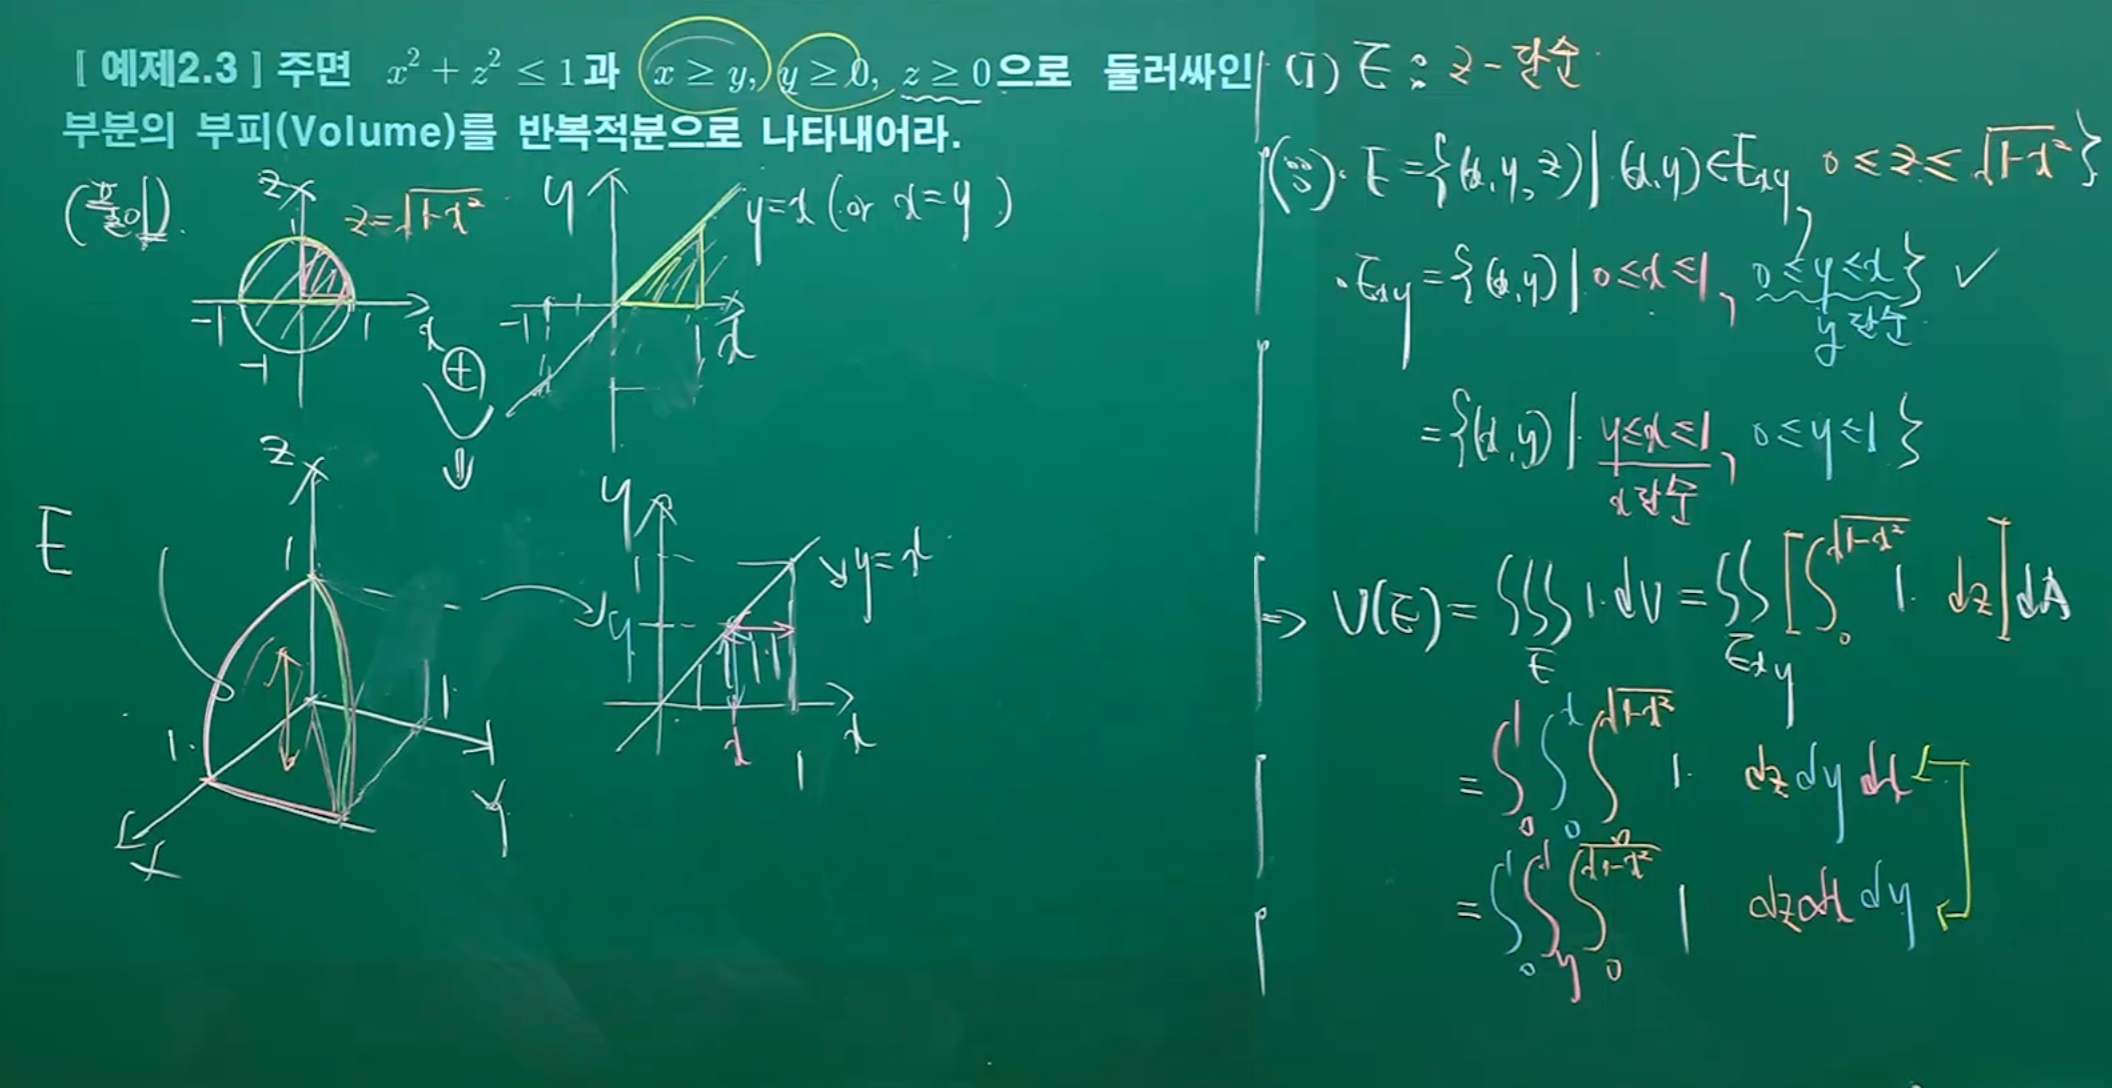 [ 예제2.3 ] 주면 x² + z² ≤ 1과 x ≥ y, y ≥ 0, z ≥ 0으로 둘러싸인
부분의 부피(Volume)를 반복적분으로 나타내어라.
(풀이).
z
1
z=√1-x²
-1
1
x
-1
y
y=x (or x=y)
-1
1
x
⊕
E
z
1
1
1
x
y
y
1
y
y=x
x
1
x
(i) E : z-단순
(ii). E={(x,y,z)| (x,y)∈Exy, 0≤z≤√1-x² }
·Exy={(x,y)| 0≤x≤1, 0≤y≤x} ✓
y단순
={(x,y)| y≤x≤1, 0≤y≤1}
x단순
⇒ V(E)=∭_E 1·dV=∬_Exy [∫_0^√1-x² 1· dz]dA
=∫_0^1 ∫_0^x ∫_0^√1-x² 1· dz dy dx
=∫_0^1 ∫_y^1 ∫_0^√1-x² 1 dz dx dy